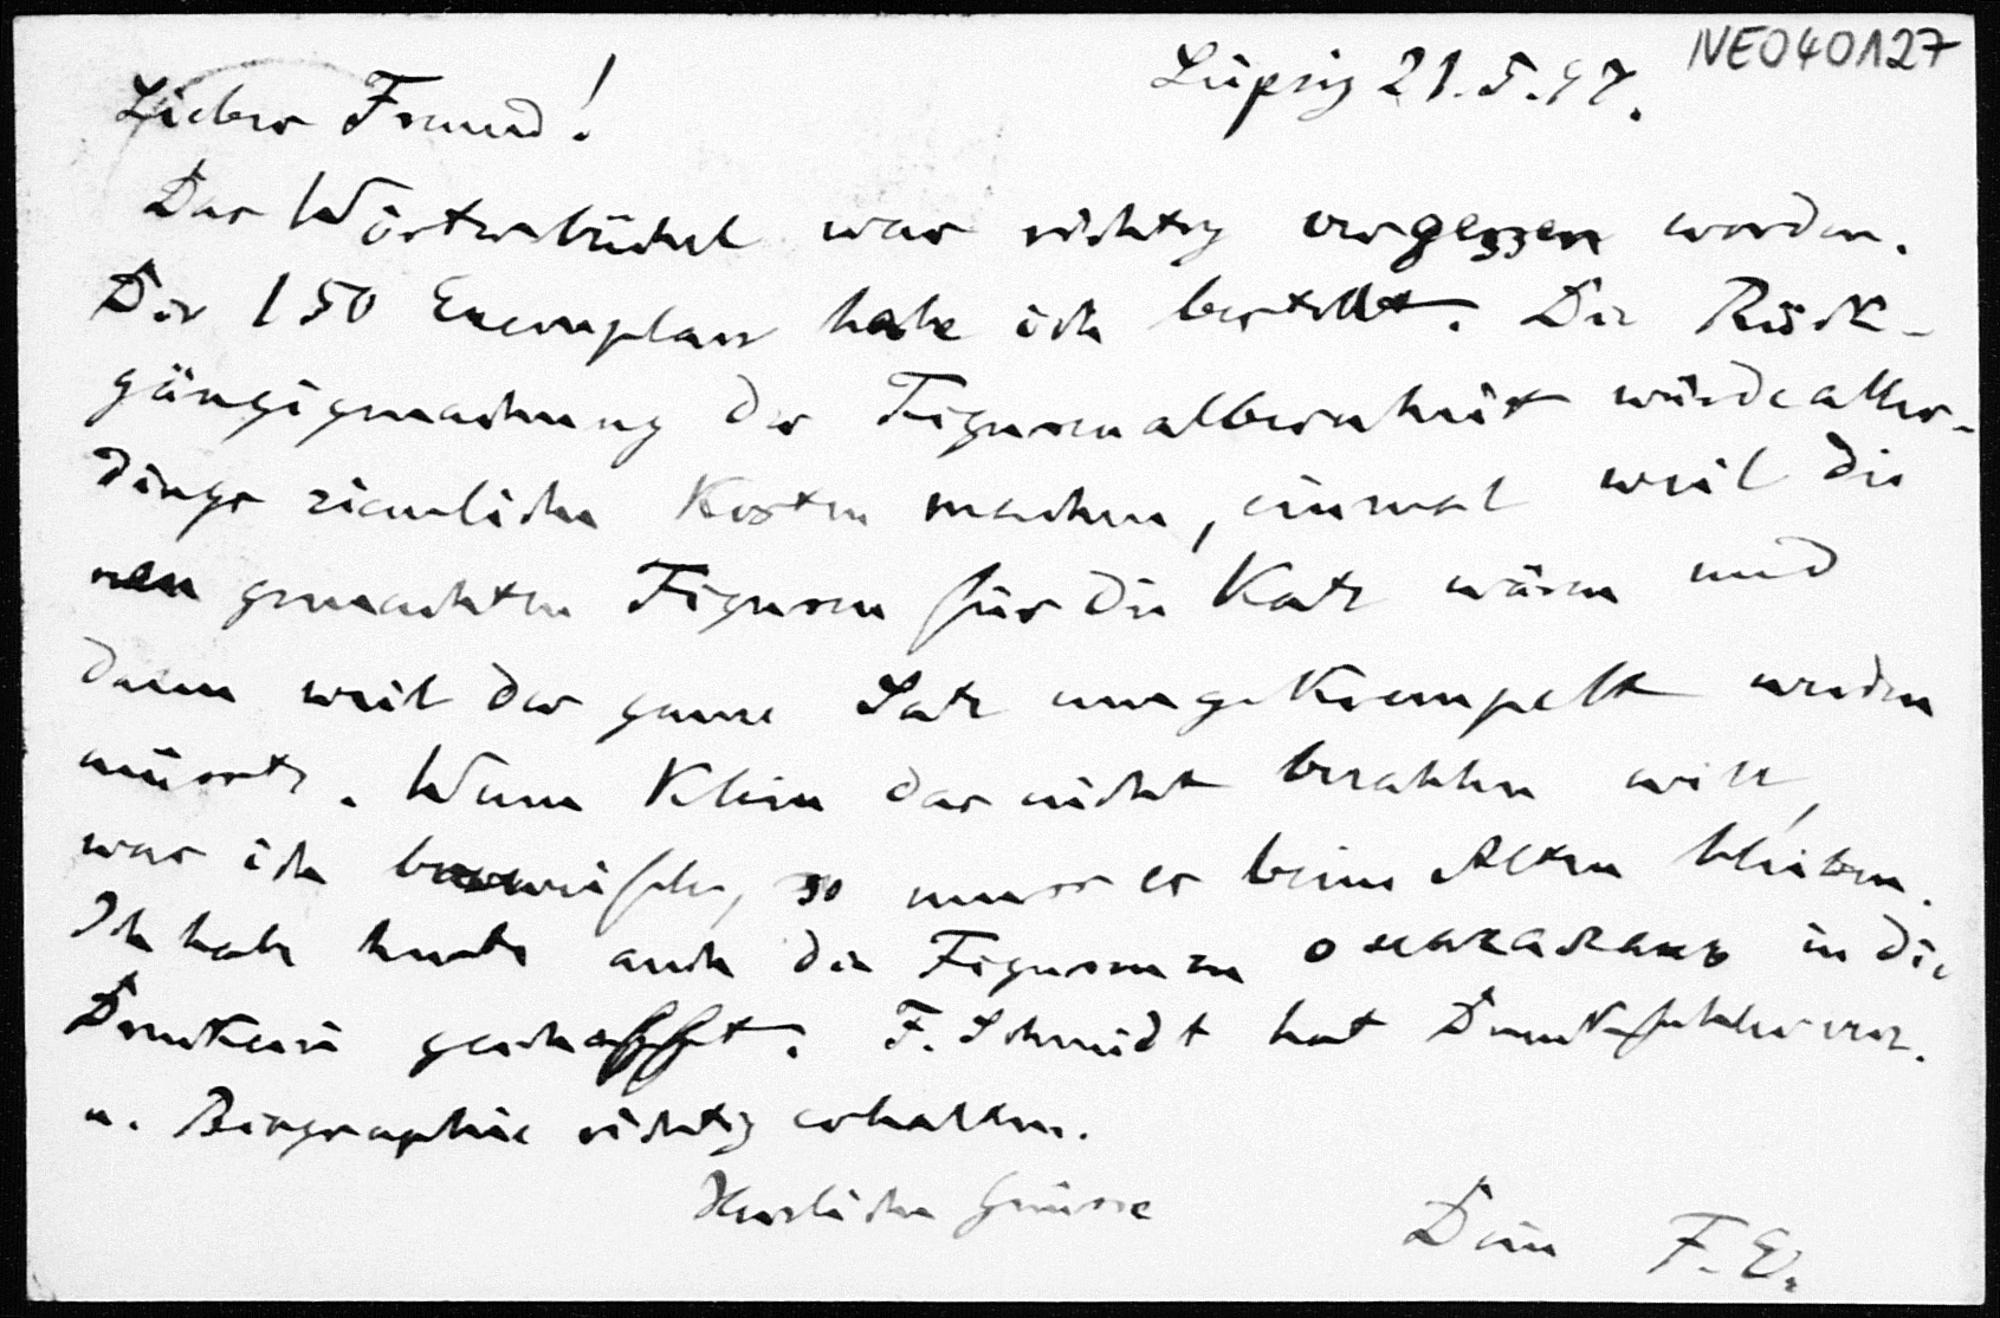 NE040127
Leipzig 21.5.97.
Lieber Freund!
Das Wörterbüchel war richtig vergessen worden.
Die 150 Exemplare habe ich bestellt. Die Rück-
gängigmachung der Figurenalbernheit würde aller-
dings ziemliche Kosten machen, einmal weil die
neu gemachten Figuren für die Katz wären und
dann weil der ganze Satz umgekrempelt werden
müsste. Wenn Klein das nicht bezahlen will,
was ich bezweifle, so muss es beim Alten bleiben.
Ich habe heute auch die Figuren zu in die
Druckerei geschafft. F. Schmidt hat Druckfehlerverz.
u. Biographie richtig erhalten.
Herzliche Grüsse
Dein F. E.